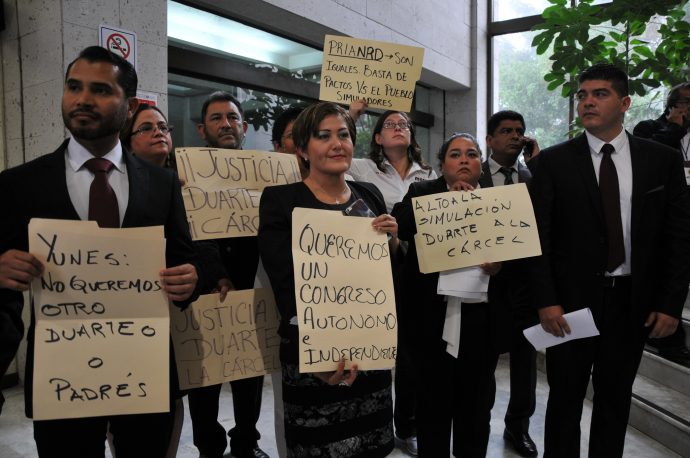 YUNES:
NO QUEREMOS
OTRO
DUARTE O
O
PADRÉS
¡¡JUSTICIA!!
DUARTE A
LA CÁRCEL
JUSTICIA
DUARTE A
LA CÁRCEL
QUEREMOS
UN
CONGRESO
AUTONOMO
E
INDEPENDIENTE
PRIANRD → SON
IGUALES. BASTA DE
PACTOS VS EL PUEBLO
SIMULADORES
ALTO A LA
SIMULACIÓN
DUARTE A LA
CÁRCEL